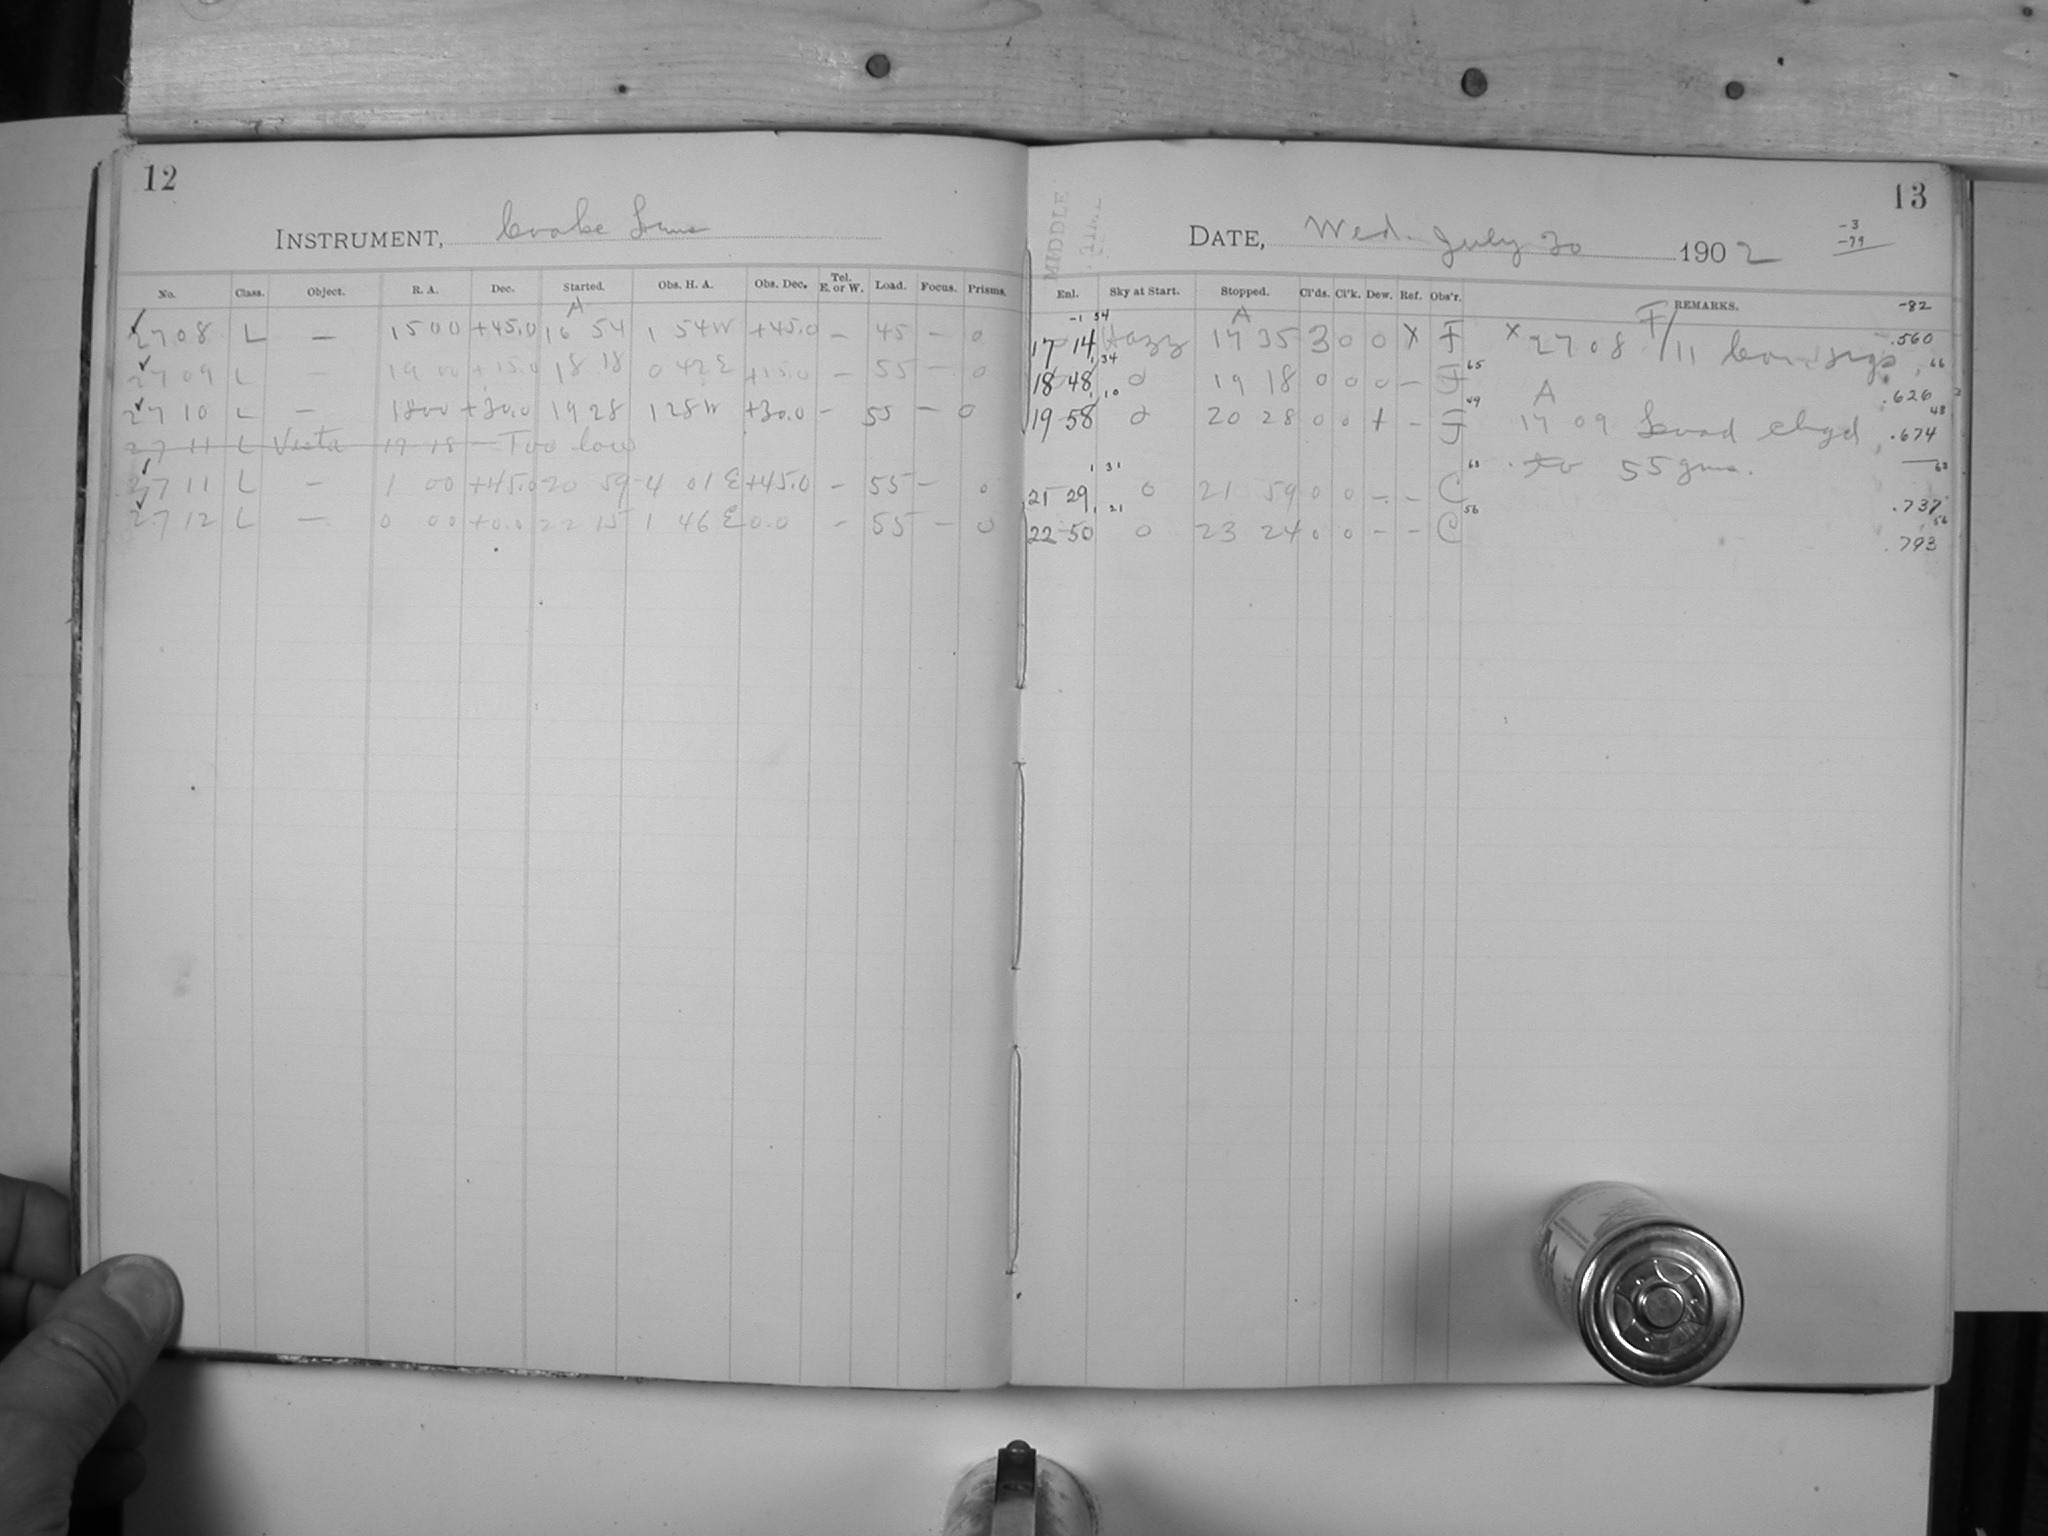 12
INSTRUMENT, Cooke Lens
No. Class. Object. R. A. Dec. Started. Obs. H. A. Obs. Dec. Tel. E. or W. Load. Focus. Prisms.
A
2708 L — 15 00 +45.0 16 54 1 54 W +45.0 — 45 — 0
2709 L — 19 00 +15.0 18 18 0 42 E +15.0 — 55 — 0
2710 L — 18 00 +30.0 19 28 1 28 W +30.0 — 55 — 0
2711 L Vesta 19 18 — Too low
2711 L — 1 00 +45.0 20 59 4 01 E +45.0 — 55 — 0
2712 L — 0 00 +0.0 22 15 1 46 E 0.0 — 55 — 0
MIDDLE
13
DATE, Wed. July 30 1902
-3
-79
-82
Enl. Sky at Start. Stopped. Cl'ds. Cl'k. Dew. Ref. Obs'r. REMARKS.
A
17 14 Hazy 17 35 3 0 0 X F X 2708 F/11 .560
18 48 0 19 18 0 0 0 — F .626
A
19 58 0 20 28 0 0 + — F 17 09 Load chgd .674
to 55 gms.
21 29 0 21 59 0 0 — — C .737
22 50 0 23 24 0 0 — — C .793